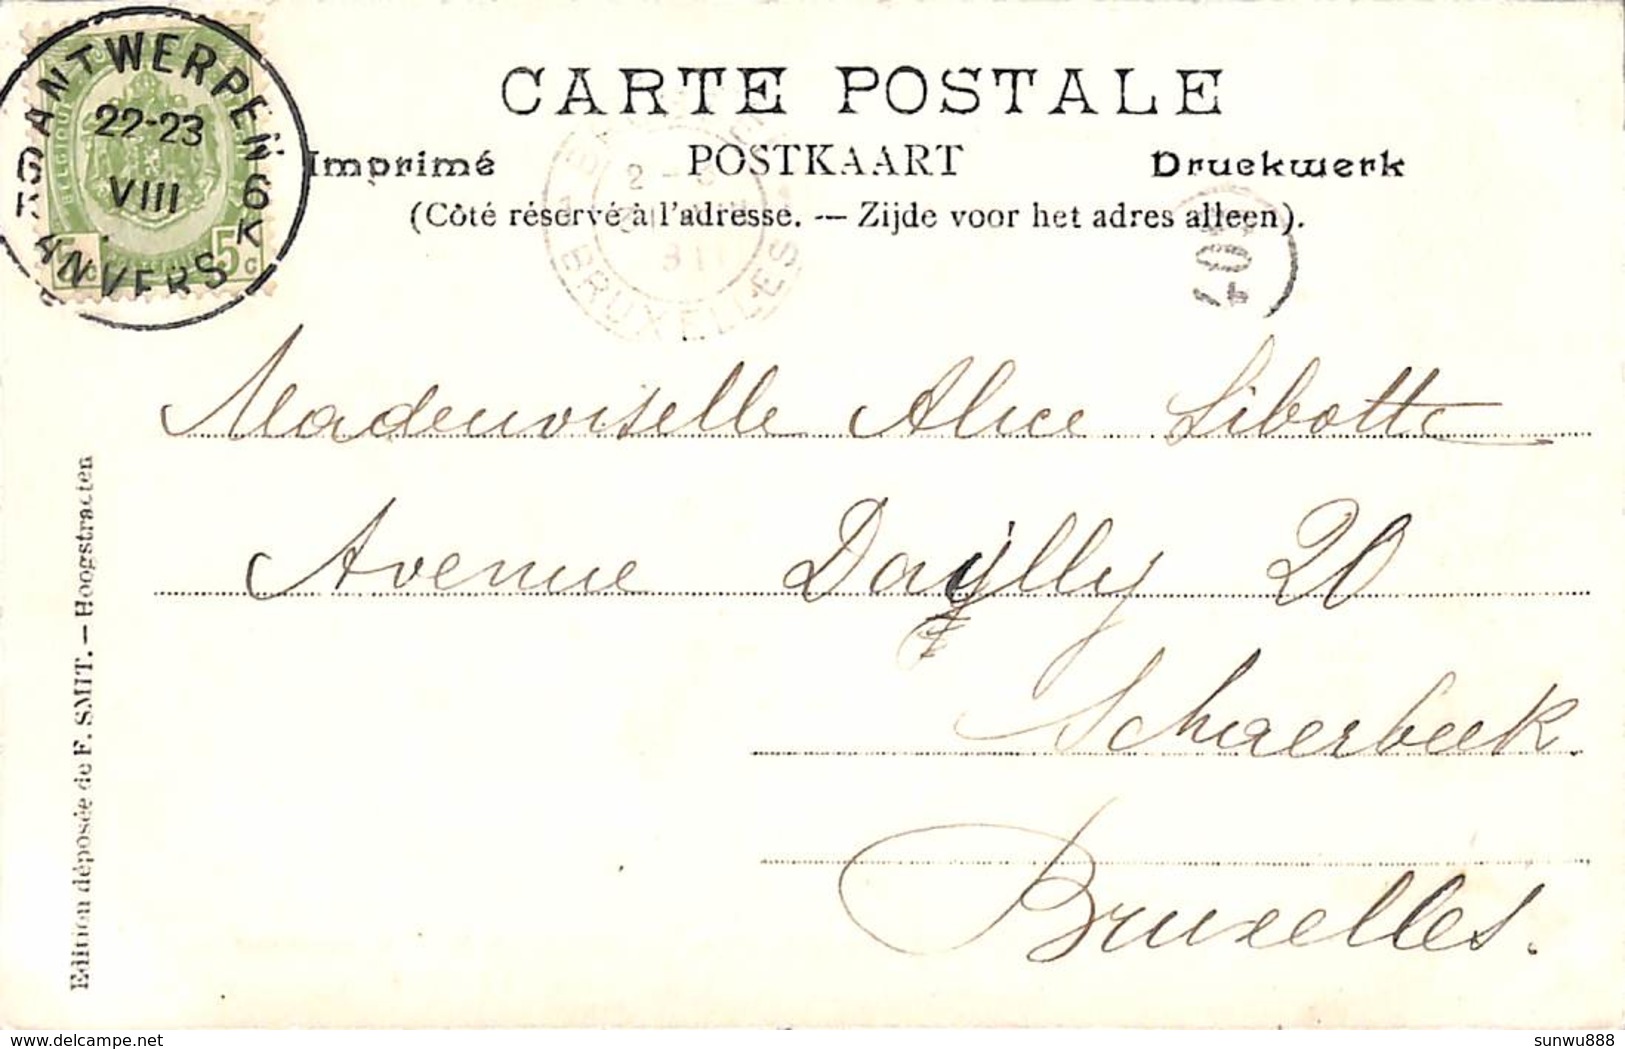 CARTE POSTALE
Imprimé POSTKAART Druckwerk
(Côté réservé à l'adresse. — Zijde voor het adres alleen).
ANTWERPEN 6 K
22-23
VIII
ANVERS
BELGIQUE
5 c
BRUXELLES
Mademoiselle Alice Libotte
Avenue Dailly 20
Schaerbeek.
Bruxelles.
Edition déposée de F. SMIT. — Hoogstraeten
delcampe.net
sunwu888